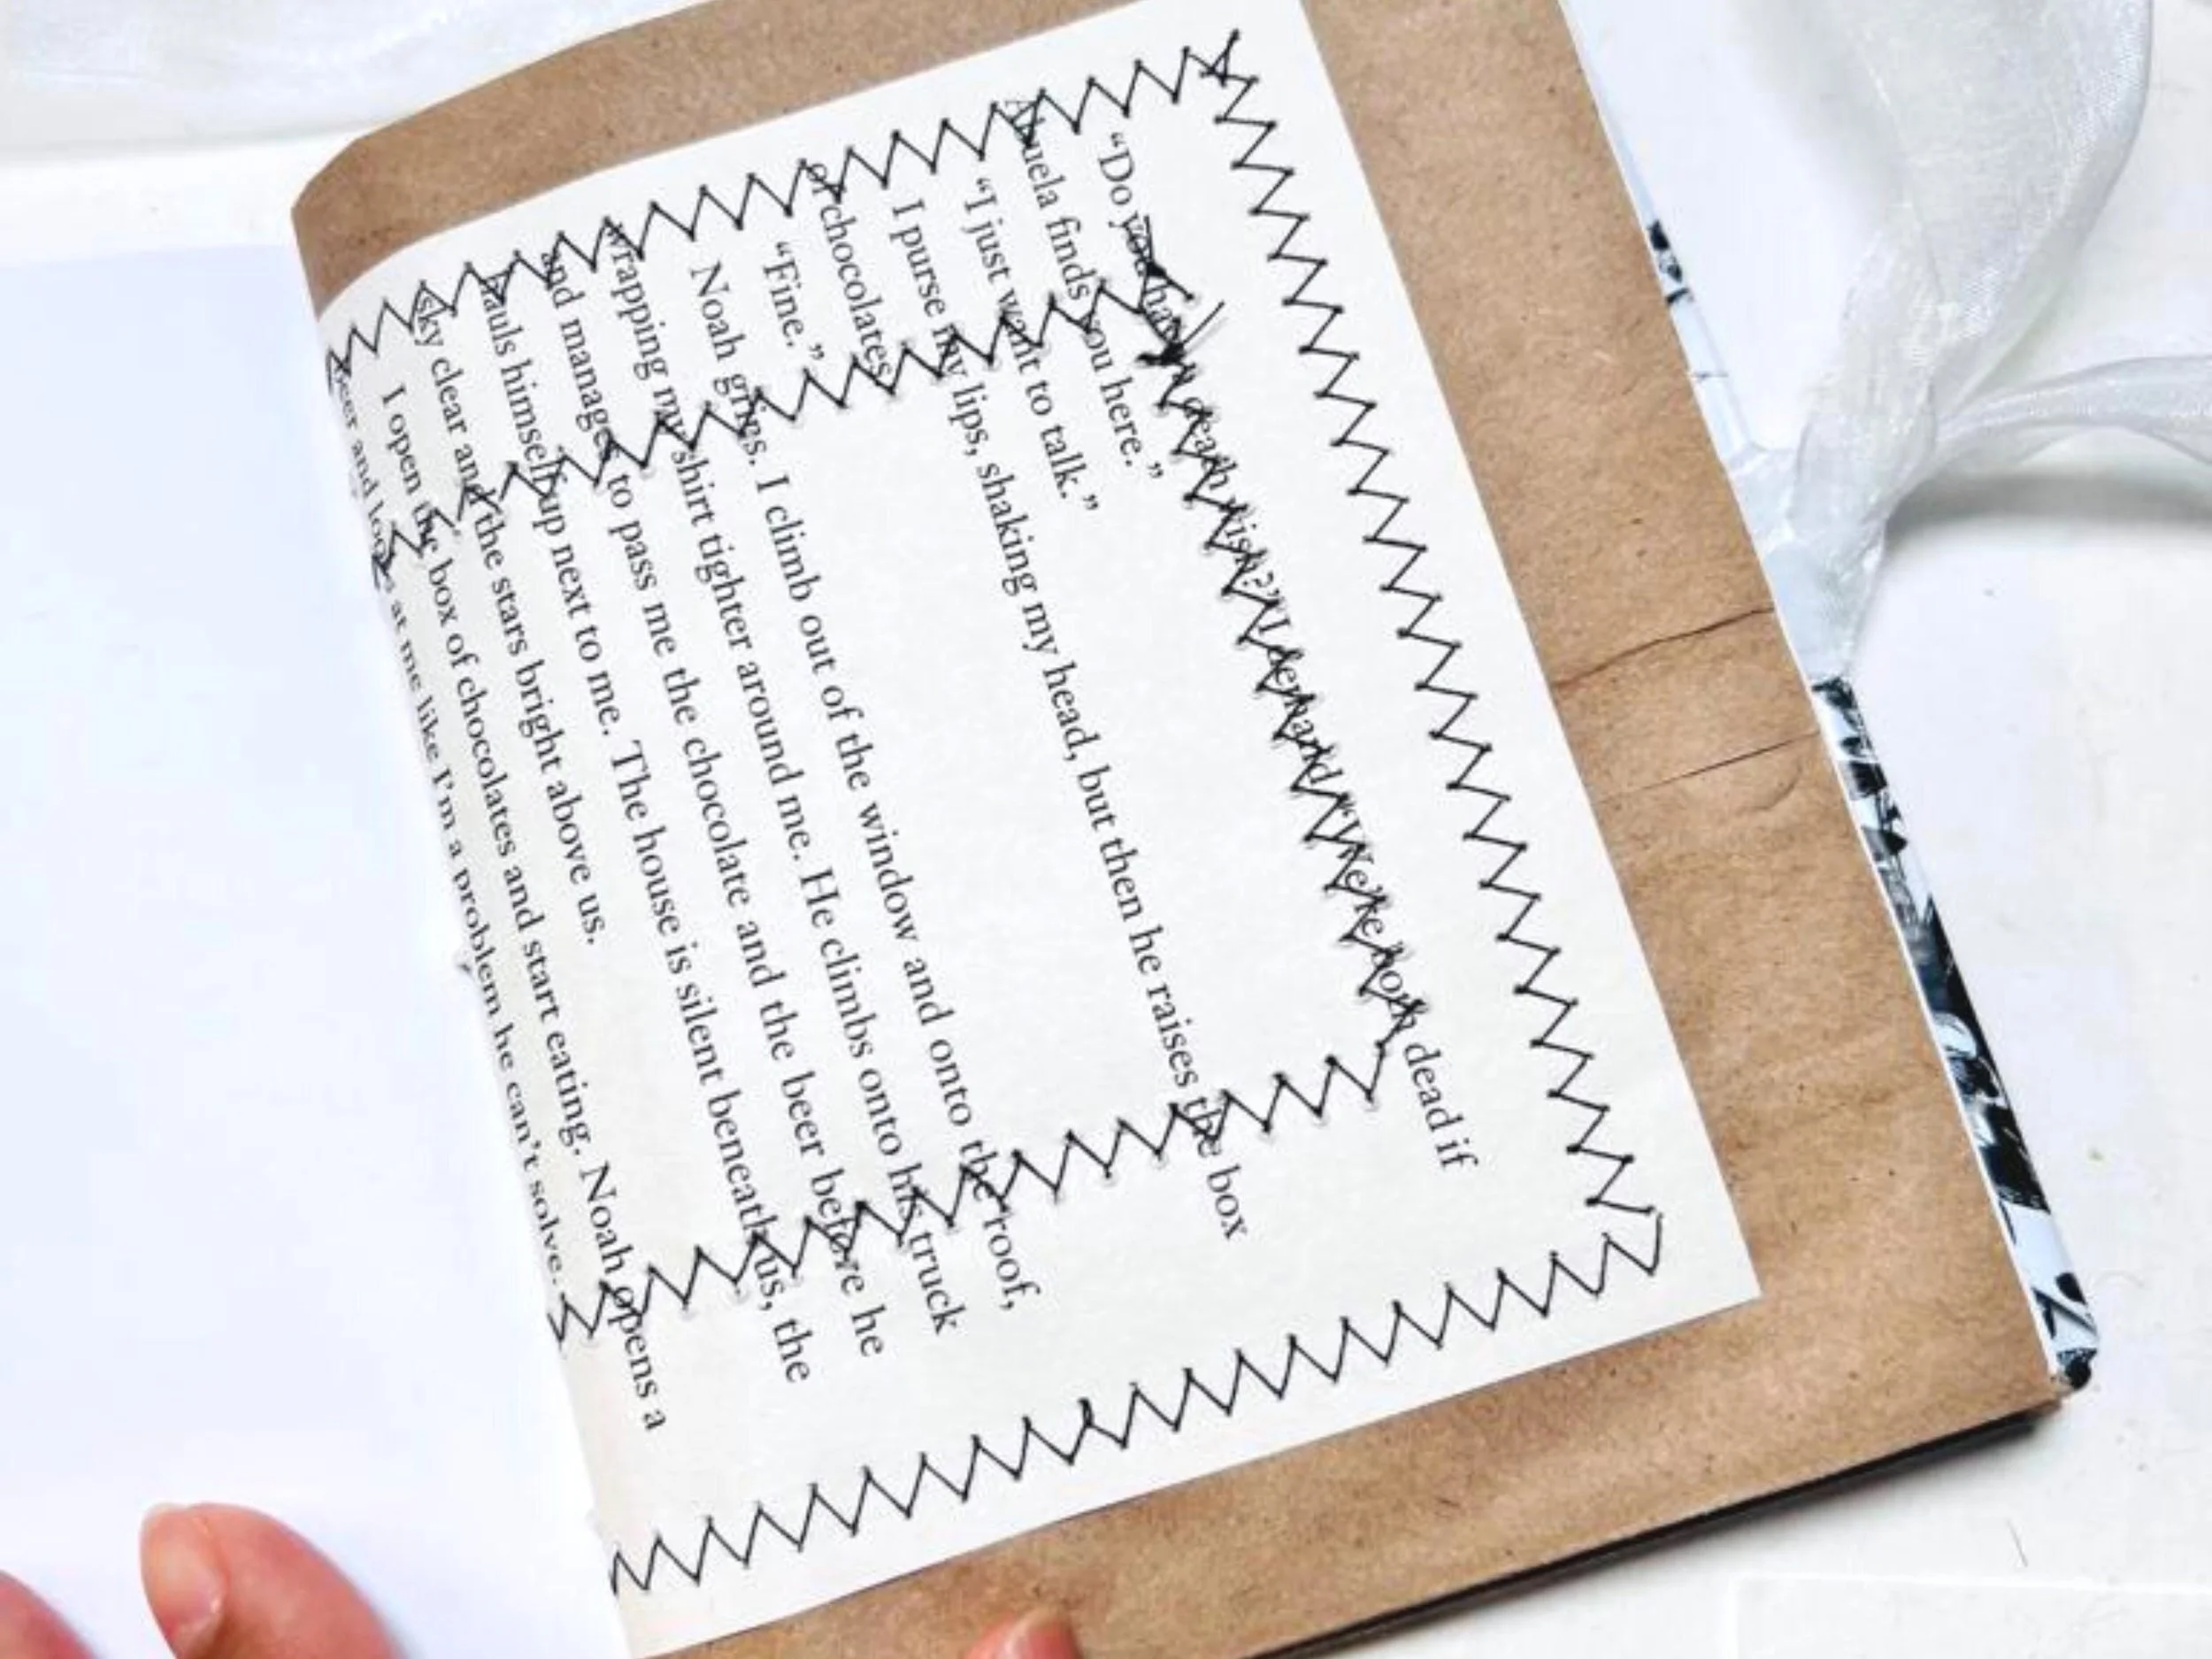 “Do you have a death wish?” I demand. “We’re both dead if
Abuela finds you here.”
“I just want to talk.”
I purse my lips, shaking my head, but then he raises the box
of chocolates.
“Fine.”
Noah grins. I climb out of the window and onto the roof,
wrapping my shirt tighter around me. He climbs onto his truck
and manages to pass me the chocolate and the beer before he
hauls himself up next to me. The house is silent beneath us, the
sky clear and the stars bright above us.
I open the box of chocolates and start eating. Noah opens a
beer and looks at me like I’m a problem he can’t solve.